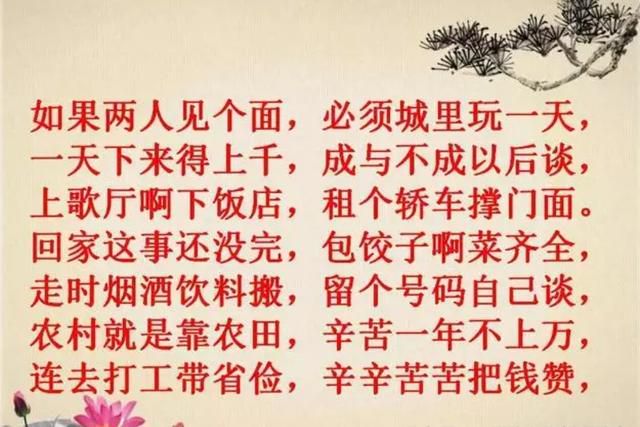 如果两人见个面，必须城里玩一天，
一天下来得上千，成与不成以后谈，
上歌厅啊下饭店，租个轿车撑门面。
回家这事还没完，包饺子啊菜齐全，
走时烟酒饮料搬，留个号码自己谈，
农村就是靠农田，辛苦一年不上万，
连去打工带省俭，辛辛苦苦把钱赞，